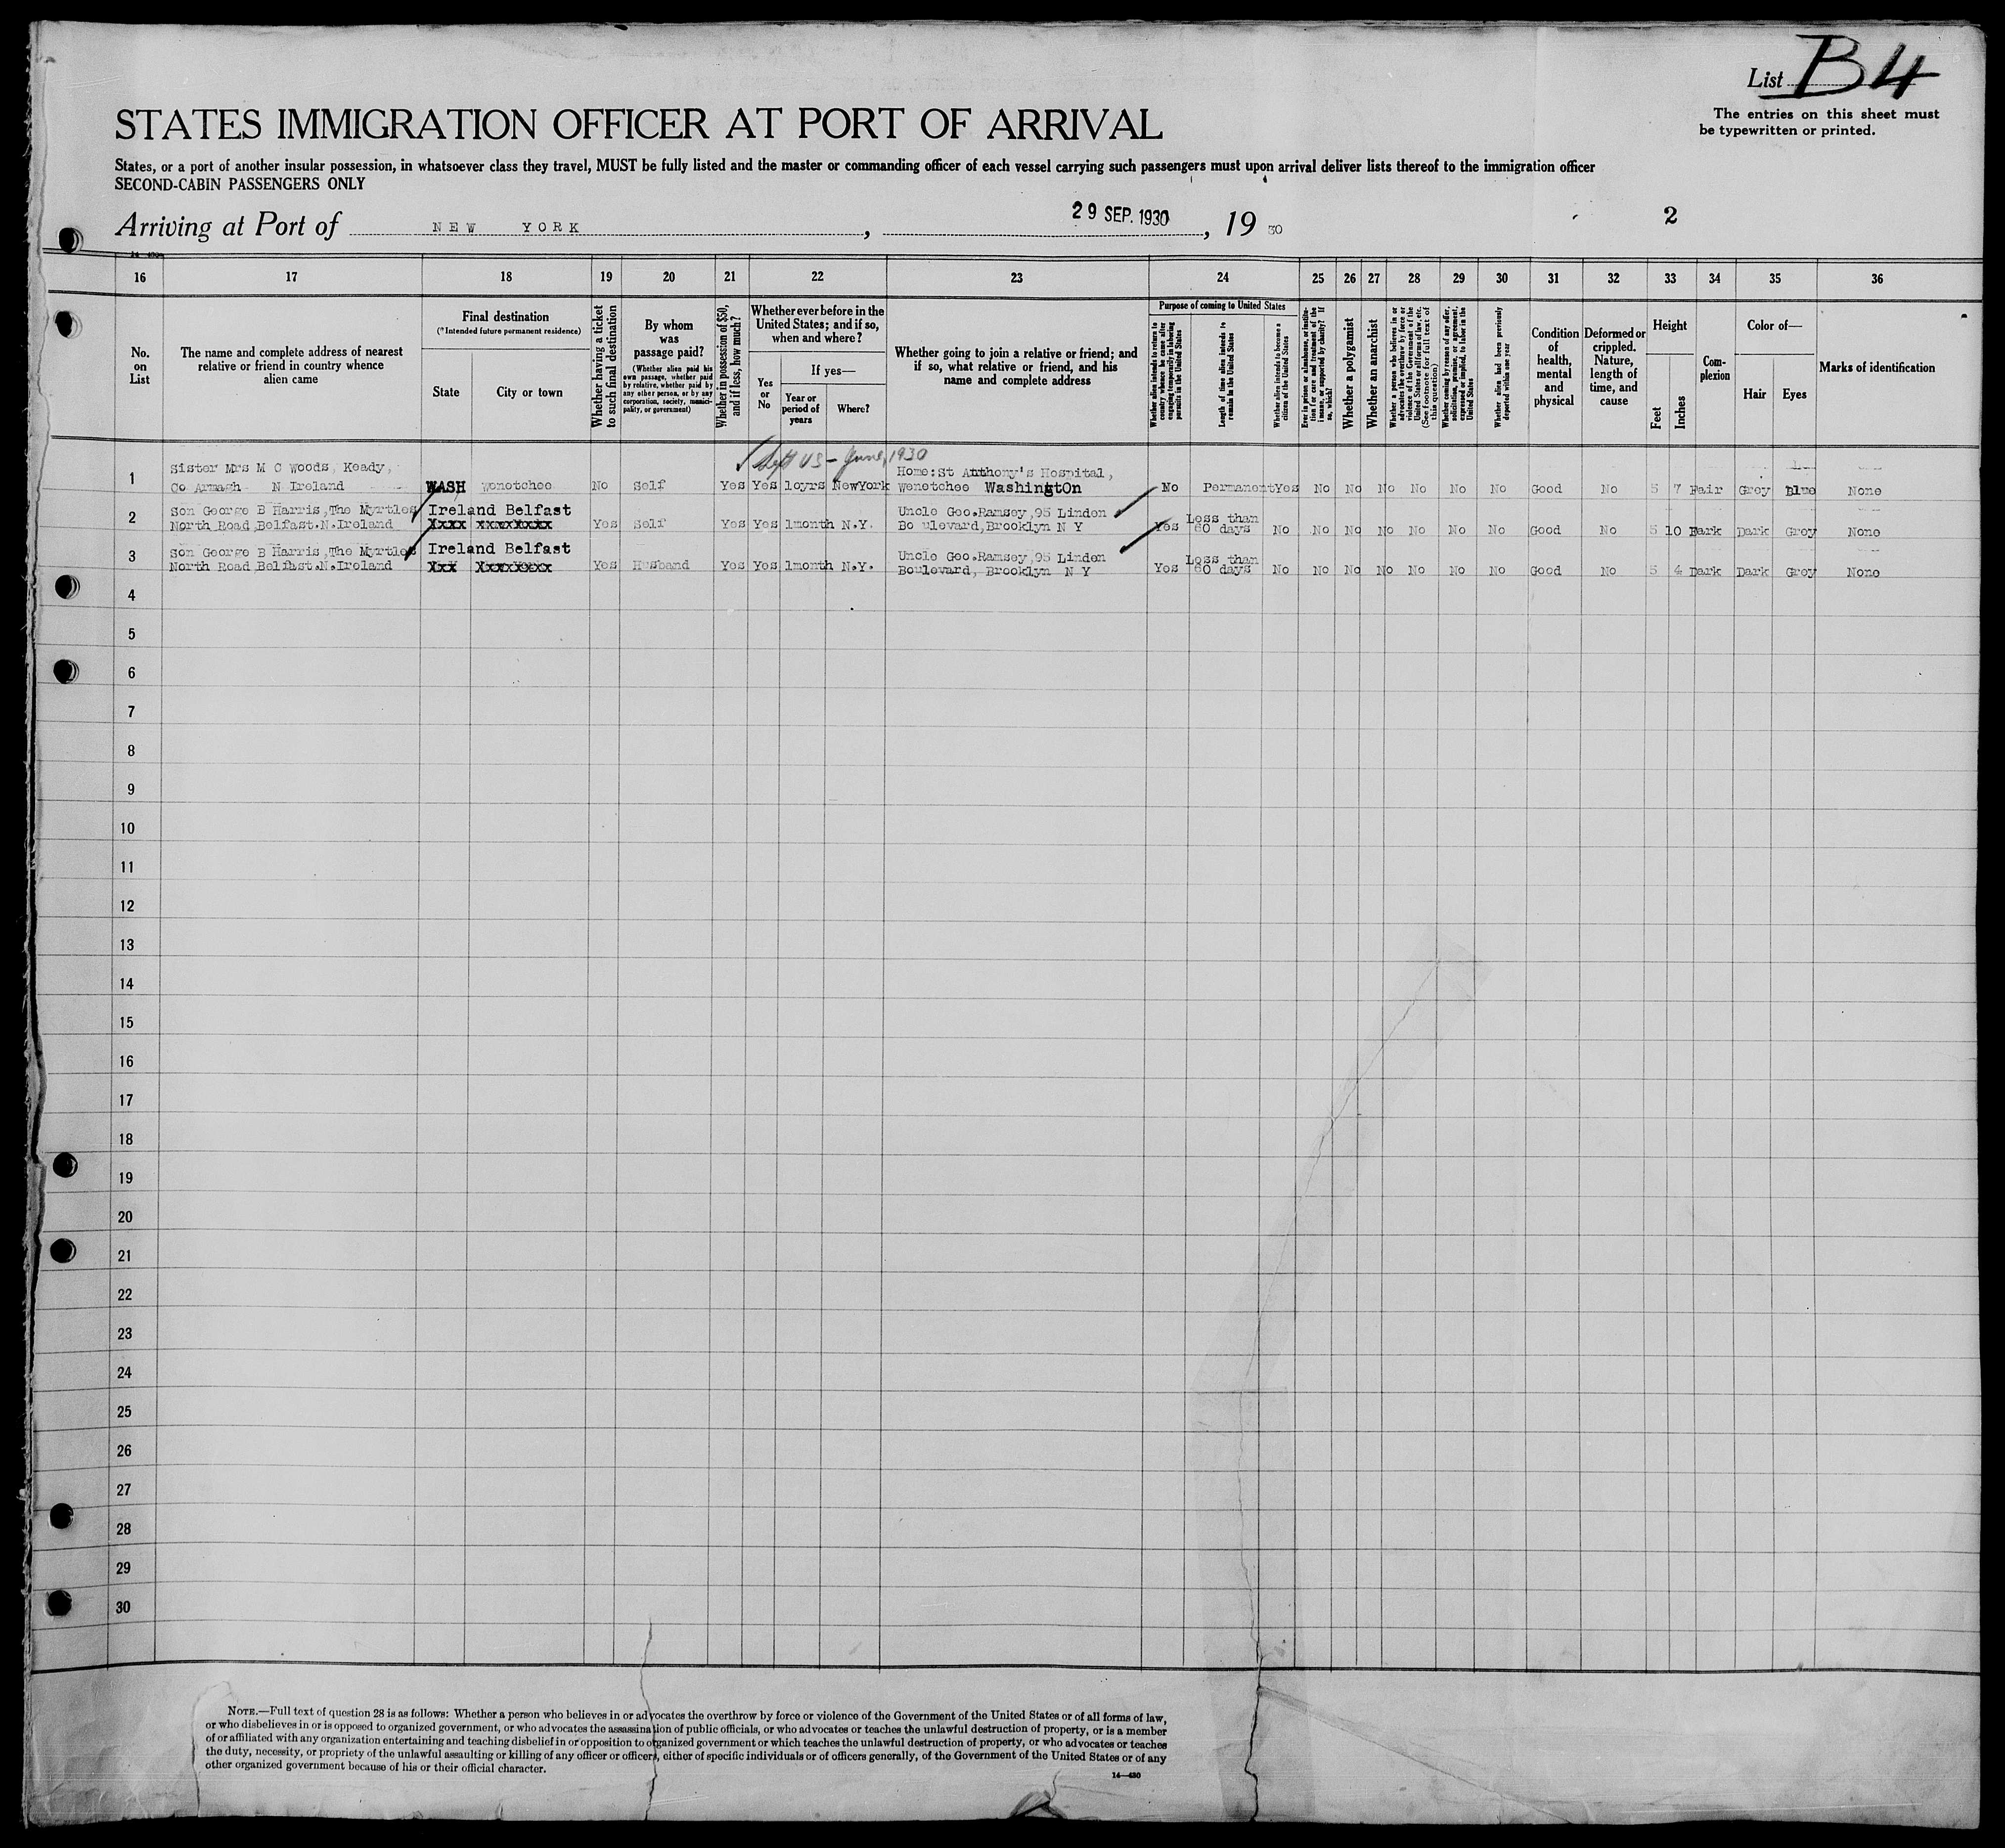 List B4
The entries on this sheet must
be typewritten or printed.
STATES IMMIGRATION OFFICER AT PORT OF ARRIVAL
States, or a port of another insular possession, in whatsoever class they travel, MUST be fully listed and the master or commanding officer of each vessel carrying such passengers must upon arrival deliver lists thereof to the immigration officer
SECOND-CABIN PASSENGERS ONLY
Arriving at Port of NEW YORK, 29 SEP. 1930, 19 30
2
16 17 18 19 20 21 22 23 24 25 26 27 28 29 30 31 32 33 34 35 36
No. on List
The name and complete address of nearest
relative or friend in country whence
alien came
Final destination
(*Intended future permanent residence)
State
City or town
Whether having a ticket
to such final destination
By whom
was
passage paid?
(Whether alien paid his
own passage, whether paid
by relative, whether paid by
any other person, or by any
corporation, society, munici-
pality, or government)
Whether in possession of $50,
and if less, how much?
Whether ever before in the
United States; and if so,
when and where?
Yes
or
No
If yes—
Year or
period of
years
Where?
Whether going to join a relative or friend; and
if so, what relative or friend, and his
name and complete address
Purpose of coming to United States
Whether alien intends to return to
country whence he came after
engaging temporarily in laboring
pursuits in the United States
Length of time alien intends to
remain in the United States
Whether alien intends to become a
citizen of the United States
Ever in prison or almshouse, or institu-
tion for care and treatment of the
insane, or supported by charity? If
so, which?
Whether a polygamist
Whether an anarchist
Whether a person who believes in or
advocates the overthrow by force or
violence of the Government of the
United States or all forms of law, etc.
(See footnote for full text of
this question)
Whether coming by reason of any offer,
solicitation, promise, or agreement,
expressed or implied, to labor in the
United States
Whether alien had been previously
deported within one year
Condition
of
health,
mental
and
physical
Deformed or
crippled.
Nature,
length of
time, and
cause
Height
Feet
Inches
Com-
plexion
Color of—
Hair
Eyes
Marks of identification
Left US - June, 1930
1 Sister Mrs M C Woods, Keady, Home: St Anthony's Hospital,
Co Armagh N Ireland WASH Wenotchee No Self Yes Yes 10yrs NewYork Wenotchee WashingtOn No Permanent Yes No No No No No No Good No 5 7 Fair Grey Blue None
2 Son George B Harris, The Myrtles Ireland Belfast Uncle Geo.Ramsey, 95 Linden Less than
North Road Belfast.N.Ireland Xxxx xxxxxxxxx Yes Self Yes Yes 1month N.Y. Bo ulevard, Brooklyn N Y Yes 60 days No No No No No No No Good No 5 10 Dark Dark Grey None
3 Son George B Harris, The Myrtles Ireland Belfast Uncle Geo.Ramsey, 95 Linden Less than
North Road Belfast.N.Ireland XxX Xxxxxxxxx Yes Husband Yes Yes 1month N.Y. Boulevard, Brooklyn N Y Yes 60 days No No No No No No No Good No 5 4 Dark Dark Grey None
4
5
6
7
8
9
10
11
12
13
14
15
16
17
18
19
20
21
22
23
24
25
26
27
28
29
30
NOTE.—Full text of question 28 is as follows: Whether a person who believes in or advocates the overthrow by force or violence of the Government of the United States or of all forms of law,
or who disbelieves in or is opposed to organized government, or who advocates the assassination of public officials, or who advocates or teaches the unlawful destruction of property, or is a member
of or affiliated with any organization entertaining and teaching disbelief in or opposition to organized government or which teaches the unlawful destruction of property, or who advocates or teaches
the duty, necessity, or propriety of the unlawful assaulting or killing of any officer or officers, either of specific individuals or of officers generally, of the Government of the United States or of any
other organized government because of his or their official character.
14—430